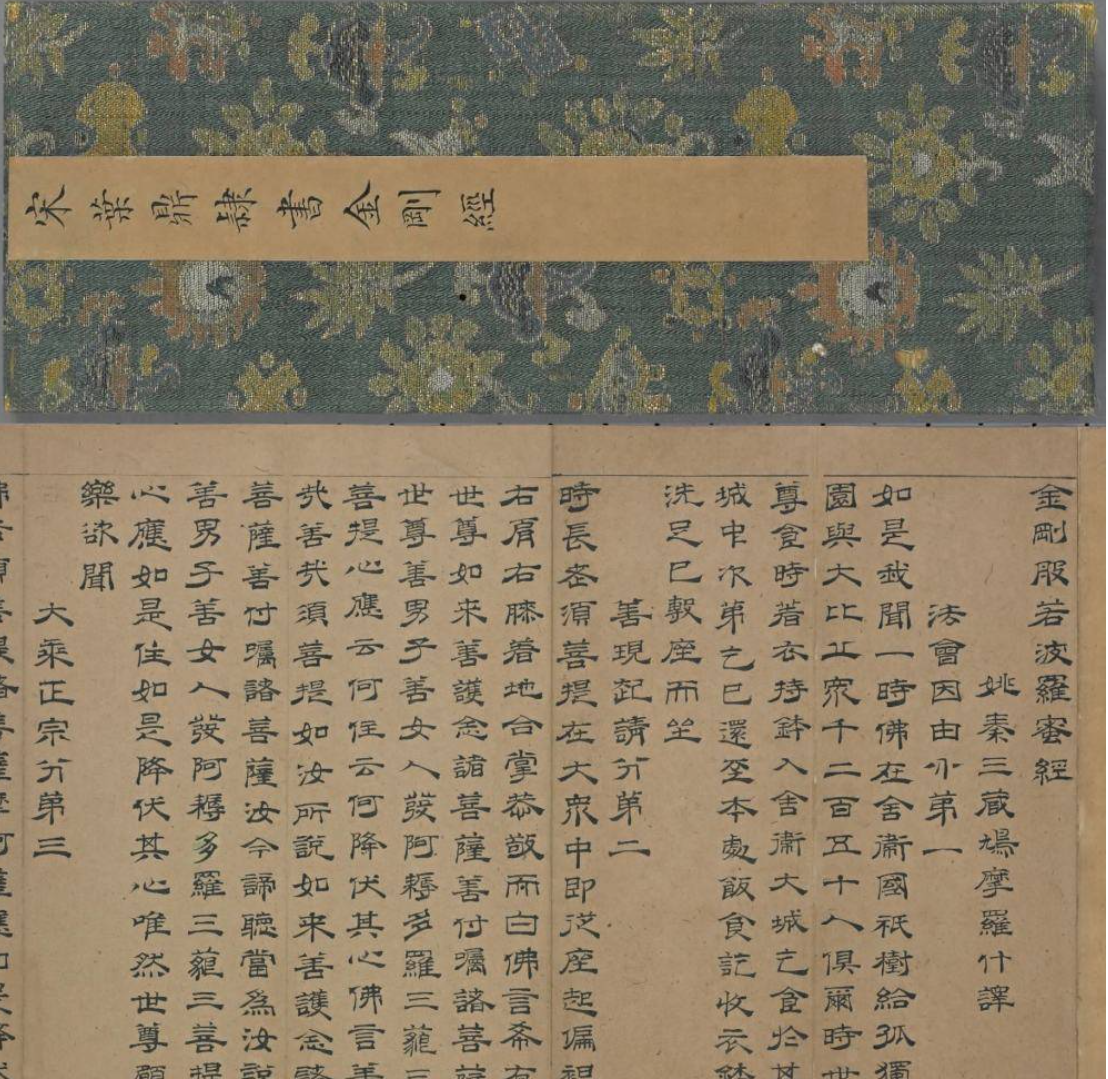 宋葉鼎隸書金剛經
金剛般若波羅蜜經
姚秦三藏鳩摩羅什譯
法會因由分第一
如是我聞一時佛在舍衛國祇樹給孤獨
園與大比丘眾千二百五十人俱爾時世
尊食時着衣持鉢入舍衛大城乞食於其
城中次第乞已還至本處飯食訖收衣鉢
洗足已敷座而坐
善現起請分第二
時長老須菩提在大衆中即從座起偏袒
右肩右膝着地合掌恭敬而白佛言希有
世尊如来善護念諸菩薩善付囑諸菩薩
世尊善男子善女人發阿耨多羅三藐三
菩提心應云何住云何降伏其心佛言善
哉善哉須菩提如汝所說如来善護念諸
菩薩善付囑諸菩薩汝今諦聽當為汝說
善男子善女人發阿耨多羅三藐三菩提
心應如是住如是降伏其心唯然世尊願
樂欲聞
大乘正宗分第三